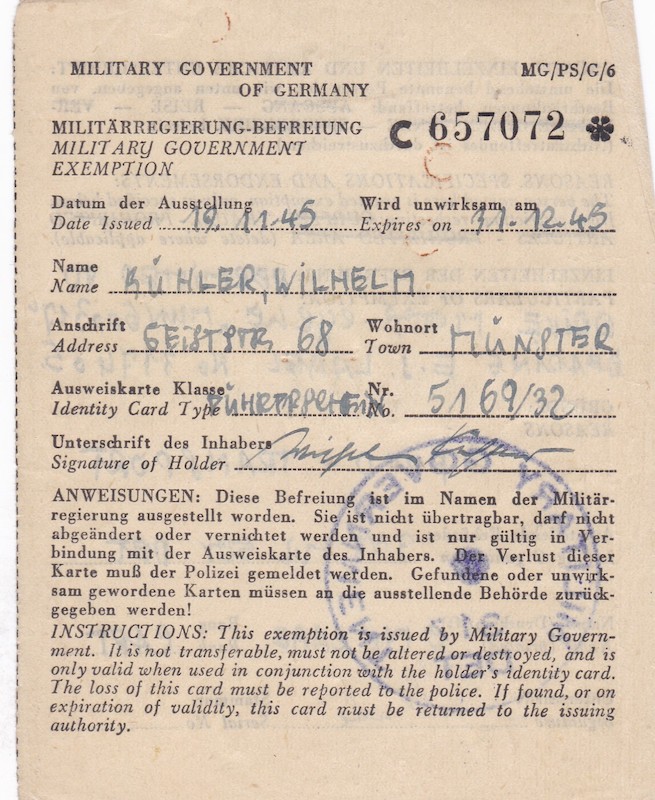 MILITARY GOVERNMENT OF GERMANY
MG/PS/G/6
MILITÄRREGIERUNG-BEFREIUNG
MILITARY GOVERNMENT
EXEMPTION
C 657072
Datum der Ausstellung
Date Issued 19.11.45
Wird unwirksam am
Expires on 31.12.45
Name
Name BÜHLER, WILHELM
Anschrift
Address GEISTSTR 68
Wohnort
Town MÜNSTER
Ausweiskarte Klasse
Identity Card Type FÜHRERSCHEIN
Nr.
No. 5169/32
Unterschrift des Inhabers
Signature of Holder
ANWEISUNGEN: Diese Befreiung ist im Namen der Militär-
regierung ausgestellt worden. Sie ist nicht übertragbar, darf nicht
abgeändert oder vernichtet werden und ist nur gültig in Ver-
bindung mit der Ausweiskarte des Inhabers. Der Verlust dieser
Karte muß der Polizei gemeldet werden. Gefundene oder unwirk-
sam gewordene Karten müssen an die ausstellende Behörde zurück-
gegeben werden!
INSTRUCTIONS: This exemption is issued by Military Govern-
ment. It is not transferable, must not be altered or destroyed, and is
only valid when used in conjunction with the holder's identity card.
The loss of this card must be reported to the police. If found, or on
expiration of validity, this card must be returned to the issuing
authority.
MILITARY GOVERNMENT